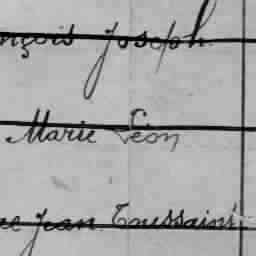 nçois Joseph
Marie Léon
Jean Toussaint